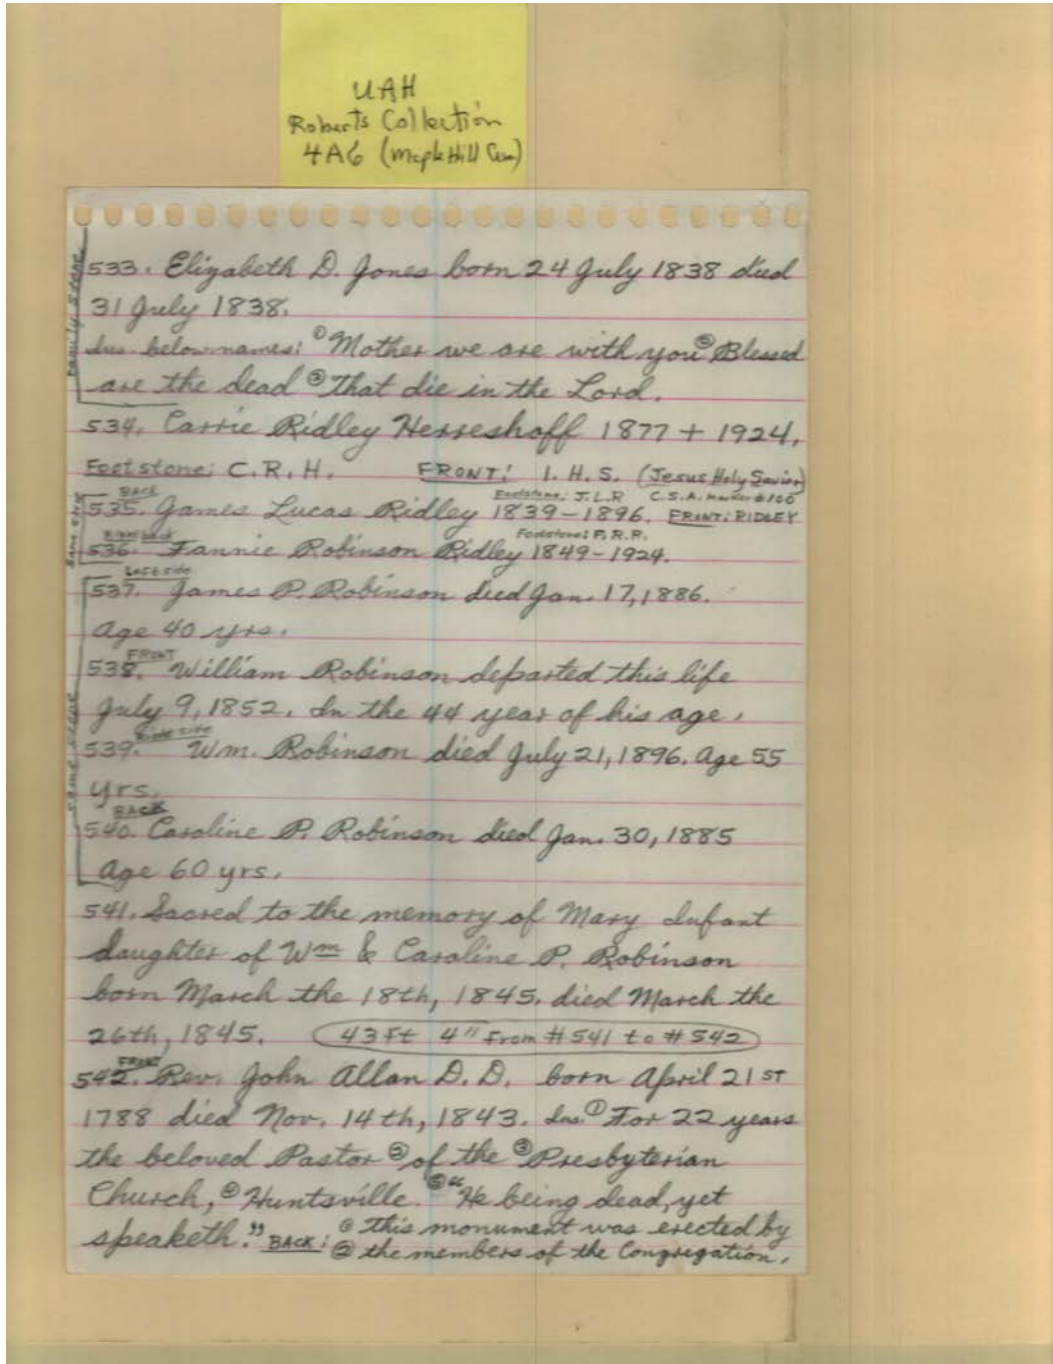 UAH
Roberts Collection
4A6 (Maple Hill Cem)
Family Stone
533. Elizabeth D. Jones born 24 July 1838 died
31 July 1838.
Ins. below names: ① Mother we are with you ② Blessed
are the dead ③ That die in the Lord.
534. Carrie Ridley Herreshoff 1877 + 1924.
Footstone: C.R.H. FRONT: I.H.S. (Jesus Holy Savior)
Same Stone
BACK Footstone: J.L.R C.S.A. marker #100
535. James Lucas Ridley 1839-1896. FRONT: RIDLEY
Back Footstone: F.R.R.
536. Fannie Robinson Ridley 1849-1924.
Same Stone
Left side
537. James P. Robinson died Jan. 17, 1886.
Age 40 yrs.
FRONT
538. William Robinson departed this life
July 9, 1852. In the 44 year of his age.
Right side
539. Wm. Robinson died July 21, 1896. Age 55
yrs.
BACK
540. Caroline P. Robinson died Jan. 30, 1885
Age 60 yrs.
541. Sacred to the memory of Mary Infant
daughter of Wm & Caroline P. Robinson
born March the 18th, 1845. died March the
26th, 1845. 43 Ft 4" From #541 to #542
FRONT
542. Rev. John Allan D.D. born April 21 ST
1788 died Nov. 14th, 1843. Ins. ① For 22 years
the beloved Pastor ② of the ③ Presbyterian
Church, ④ Huntsville. ⑤ "He being dead, yet
speaketh." BACK: ① This monument was erected by
② the members of the Congregation.